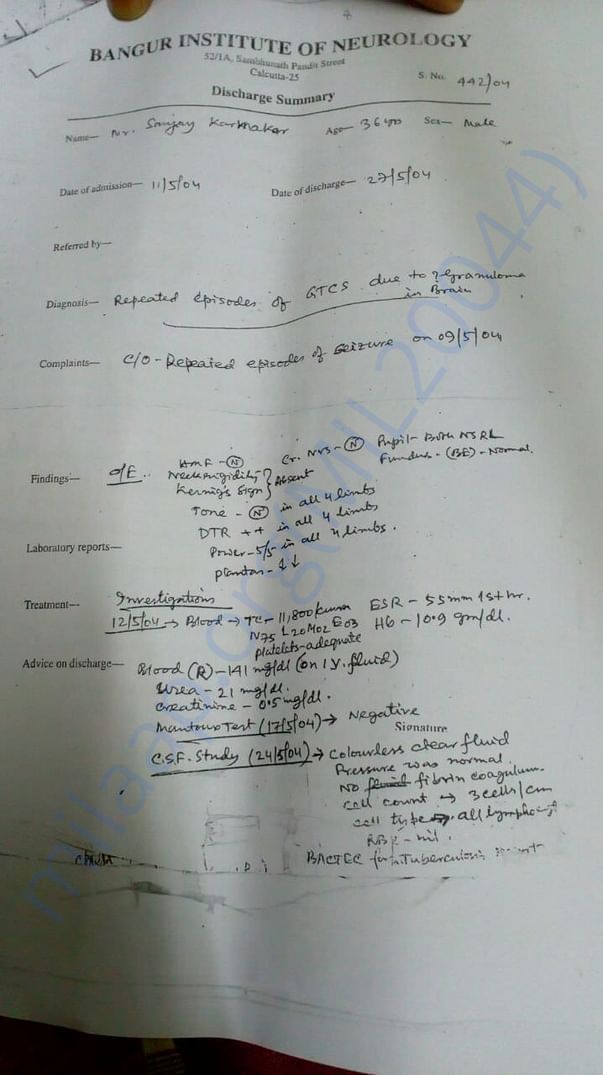 BANGUR INSTITUTE OF NEUROLOGY
52/1A, Sambhunath Pandit Street
Calcutta-25
S. No. 442/04
Discharge Summary
Name— Mr. Sanjay Karmakar Age— 36 yrs Sex— Male
Date of admission— 11/5/04 Date of discharge— 27/5/04
Referred by—
Diagnosis— Repeated episodes of GTCS due to ? granuloma
in Brain
Complaints— C/O - Repeated episodes of seizure on 09/5/04
Findings— O/E. HMF - (N) Cr. Nvs - (N) Pupil - Both NSRL
Neck rigidity } Absent Fundus - (BE) - Normal.
Kernig's Sign
Tone - (N) in all 4 limbs
DTR ++ in all 4 limbs
Laboratory reports— Power - 5/5 in all 4 limbs.
Plantar - ↓↓
Treatment— Investigations
12/5/04 → Blood → TC - 11,800/cumm ESR - 55mm 1st hr.
N75 L20 M02 E03 Hb - 10.9 gm/dl.
platelets - adequate
Advice on discharge— Blood (R) - 141 mg/dl (on I.V. fluid)
Urea - 21 mg/dl.
Creatinine - 0.5 mg/dl.
Mantoux Test (17/5/04) → Negative
Signature
C.S.F. Study (24/5/04) → Colourless clear fluid
Pressure was normal.
No fluid fibrin coagulum.
cell count → 3 cells/cm
cell type → all lympho
RBC - nil.
BACTEC for Tuberculosis
milaap.org(MIL20044)